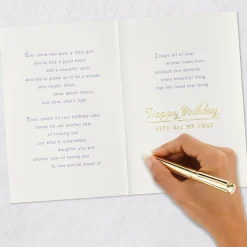 Ever since you were a little girl,
you've had a good heart
and a beautiful spirit
and you've grown up to be a woman
who laughs often,
cares about others,
and does what's right.
Every candle on your birthday cake
stands for yet another year
of finding out
just what a remarkable
daughter you are—
another year of having you
to love and be proud of.
I hope all of your
wishes come true,
because you deserve
every beautiful thing
that life could ever bring.
Happy Birthday
WITH ALL MY LOVE